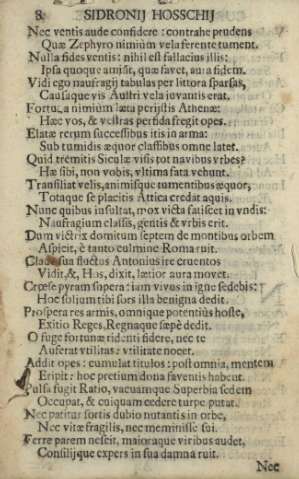 8. SIDRONII HOSSCHII
Nec ventis aude confidere: contrahe prudens
Quæ Zephyro nimiùm vela ferente tument.
Nulla fides ventis: nihil est fallacius illis:
Ipsa quoque amisit, quæ favet, aura fidem.
Vidi ego naufragij tabulas per littora sparsas,
Causaque vis Austri vela iuvantis erat.
Fortuna nimiùm læta perijstis Athenæ:
Hæc vos, & vestras perfida fregit opes.
Elatæ rerum successibus itis in arma:
Sub tumidis æquor classibus omne latet.
Quid tremitis Siculæ visis tot navibus vrbes?
Hæ sibi, non vobis, vltima fata vehunt.
Transiliat velis, animisque tumentibus æquor,
Totaque se placitis Attica credat aquis.
Nunc quibus insultat, mox victa fatiscet in vndis:
Naufragium classis, gentis & vrbis erit.
Dum victrix domitum septem de montibus orbem
Aspicit, è tanto culmine Roma ruit.
Clade sua fluctus Antonius ire cruentos
Vidit, &, Hos, dixit, lætior aura movet.
Crœse pyram supera: iam vivus in igne sedebis:
Hoc solium tibi sors illa benigna dedit.
Prospera res armis, omnique potentiùs hoste,
Exitio Reges, Regnaque sæpè dedit.
O fuge fortunæ ridenti fidere, nec te
Auferat vtilitas: vtilitate nocet.
Addit opes: cumulat titulos: post omnia, mentem
Eripit: hoc pretium dona faventis habent.
Pulsa fugit Ratio, vacuamque Superbia sedem
Occupat, & cuiquam cedere turpe putat.
Nec patitur sortis dubio nutantis in orbe,
Nec vitæ fragilis, nec meminisse sui.
Ferre parem nescit, maioraque viribus audet,
Consilijque expers in sua damna ruit.
Nec